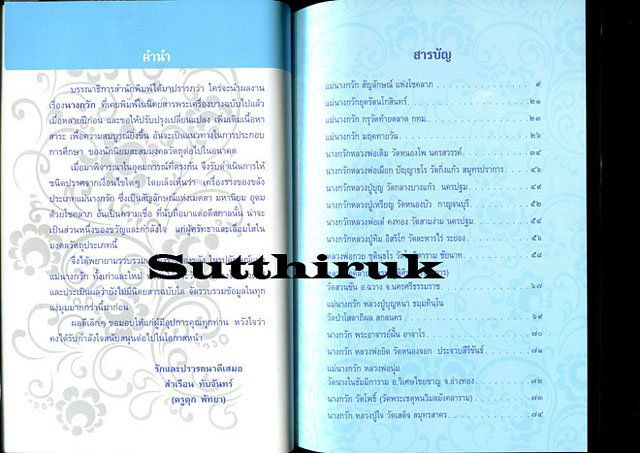 คำนำ
บรรณาธิการสำนักพิมพ์ได้มาปรารภว่า ใคร่จะนำผลงาน
เรื่องนางกวัก ที่เคยพิมพ์ในนิตยสารพระเครื่องบางฉบับไปแล้ว
เมื่อหลายปีก่อน และขอให้ปรับปรุงเปลี่ยนแปลง เพิ่มเติมเนื้อหา
สาระ เพื่อความสมบูรณ์ยิ่งขึ้น อันจะเป็นแนวทางในการประกอบ
การศึกษา ของนักนิยมสะสมมงคลวัตถุต่อไปในอนาคต
เมื่อมาพิจารณาในอุดมการณ์ที่ตรงกัน จึงรับดำเนินการให้
ชนิดปราศจากเงื่อนไขใดๆ โดยเล็งเห็นว่า เครื่องรางของขลัง
ประเภทแม่นางกวัก ซึ่งเป็นสัญลักษณ์แห่งเมตตา มหานิยม อุดม
ด้วยโชคลาภ อันเป็นความเชื่อ ที่นับถือมาแต่อดีตกาลนั้น น่าจะ
เป็นส่วนหนึ่งของขวัญและกำลังใจ แก่ผู้ศรัทธาและเลื่อมใสใน
มงคลวัตถุประเภทนี้
จึงได้พยายามรวบรวม
นางกวัก ทั้งเก่าและใหม่
และประเมินผลว่ายังไม่มีนิตยสารฉบับใด จัดรวบรวมข้อมูลในทุก
แง่มุมมากกว่านี้มาก่อน
ผลดีเลิศๆ ขอมอบให้แก่ผู้มีอุปการคุณทุกท่าน หวังใจว่า
คงได้รับกำลังใจสนับสนุนต่อไปในโอกาสหน้า
รักและปรารถนาดีเสมอ
สำเรือน ทับจันทร์
(ครูตุก พัทยา)
สารบัญ
แม่นางกวัก สัญลักษณ์ แห่งโชคลาภ ๙
แม่นางกวักยุครัตนโกสินทร์ ๒๑
แม่นางกวัก กรุวัดท้ายตลาด กทม. ๒๓
แม่นางกวัก มฤคทายวัน ๒๖
นางกวักหลวงพ่อเดิม วัดหนองโพ นครสวรรค์ ๓๔
นางกวักหลวงพ่อเผือก ปัญญาธโร วัดกิ่งแก้ว สมุทรปราการ ๔๖
นางกวักหลวงปู่บุญ วัดกลางบางแก้ว นครปฐม ๔๙
นางกวักหลวงปู่เหรียญ วัดหนองบัว กาญจนบุรี ๕๒
นางกวักหลวงพ่อเต๋ คงทอง วัดสามง่าม นครปฐม ๕๔
นางกวักหลวงปู่ทิม อิสริโก วัดละหารไร่ ระยอง ๕๖
หลวงพ่อกวย ชุตินธโร วัดโฆสิตาราม ชัยนาท ๕๘
Sutthiruk
วัดสวนขัน อ.ฉวาง จ.นครศรีธรรมราช ๖๗
แม่นางกวัก หลวงปู่บุญหนา ธมฺมทินฺโน
วัดป่าโสตถิผล สกลนคร ๖๙
นางกวัก พระอาจารย์ฝั้น อาจาโร ๗๐
นางกวัก หลวงพ่อยิด วัดหนองจอก ประจวบคีรีขันธ์ ๗๑
แม่นางกวัก หลวงพ่อนุ่ม
วัดนางในธัมมิการาม อ.วิเศษไชยชาญ จ.อ่างทอง ๗๒
นางกวัก วัดโพธิ์ (วัดพระเชตุพนวิมลมังคลาราม) ๗๓
นางกวัก หลวงปู่ใจ วัดเสด็จ สมุทรสาคร ๗๔